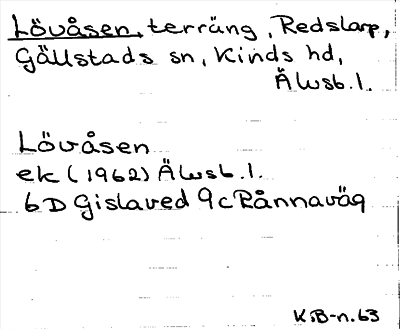 Lövåsen, terräng, Redslarp,
Gällstads sn, Kinds hd,
Älvsb. l.
Lövåsen
ek (1962) Älvsb. l.
6D Gislaved 9c Rånnaväg
KiB-n. 63